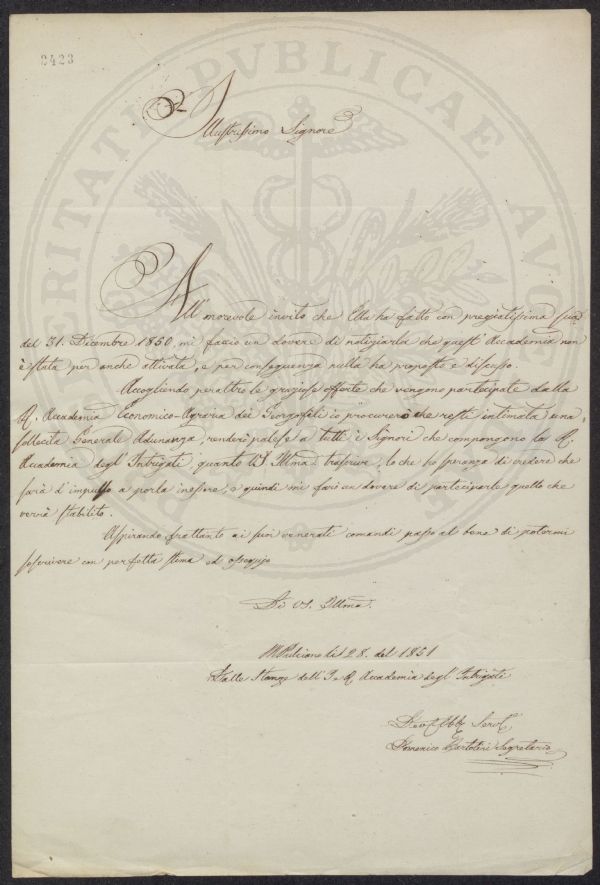 2423
PROSPERITATI PUBLICAE AUGENDAE
Illustrissimo Signore
All'morevole invito che Ella ha fatto con pregiatissima sua
del 31. Dicembre 1850, mi faccio un dovere di notiziarla che quest'Accademia non
è stata per anche attivata, e per conseguenza nulla ha proposto e discusso.
Accogliendo peraltro le graziose offerte che vengono partecipate dalla
R. Accademia Economico-Agraria dei Georgofili io procurerò che resti intimata una
sollecita Generale Adunanza, renderò palese a tutti i Signori che compongono la R.
Accademia degl'Intrigati, quanto VS Illma trascrive, lo che ho speranza di vedere che
sarà d'impulso a porla in essere, e quindi mi farò un dovere di parteciparle quello che
verrà stabilito.
Aspirando frattanto ai suoi venerati comandi passo al bene di potermi
soscrivere con perfetta stima ed ossequio
Di VS. Illma.
MPulciano li 28. del 1851
Dalle Stanze dell'I. e R. Accademia degl'Intrigati
Devot Obb Serv
Domenico Bartolini Segretario